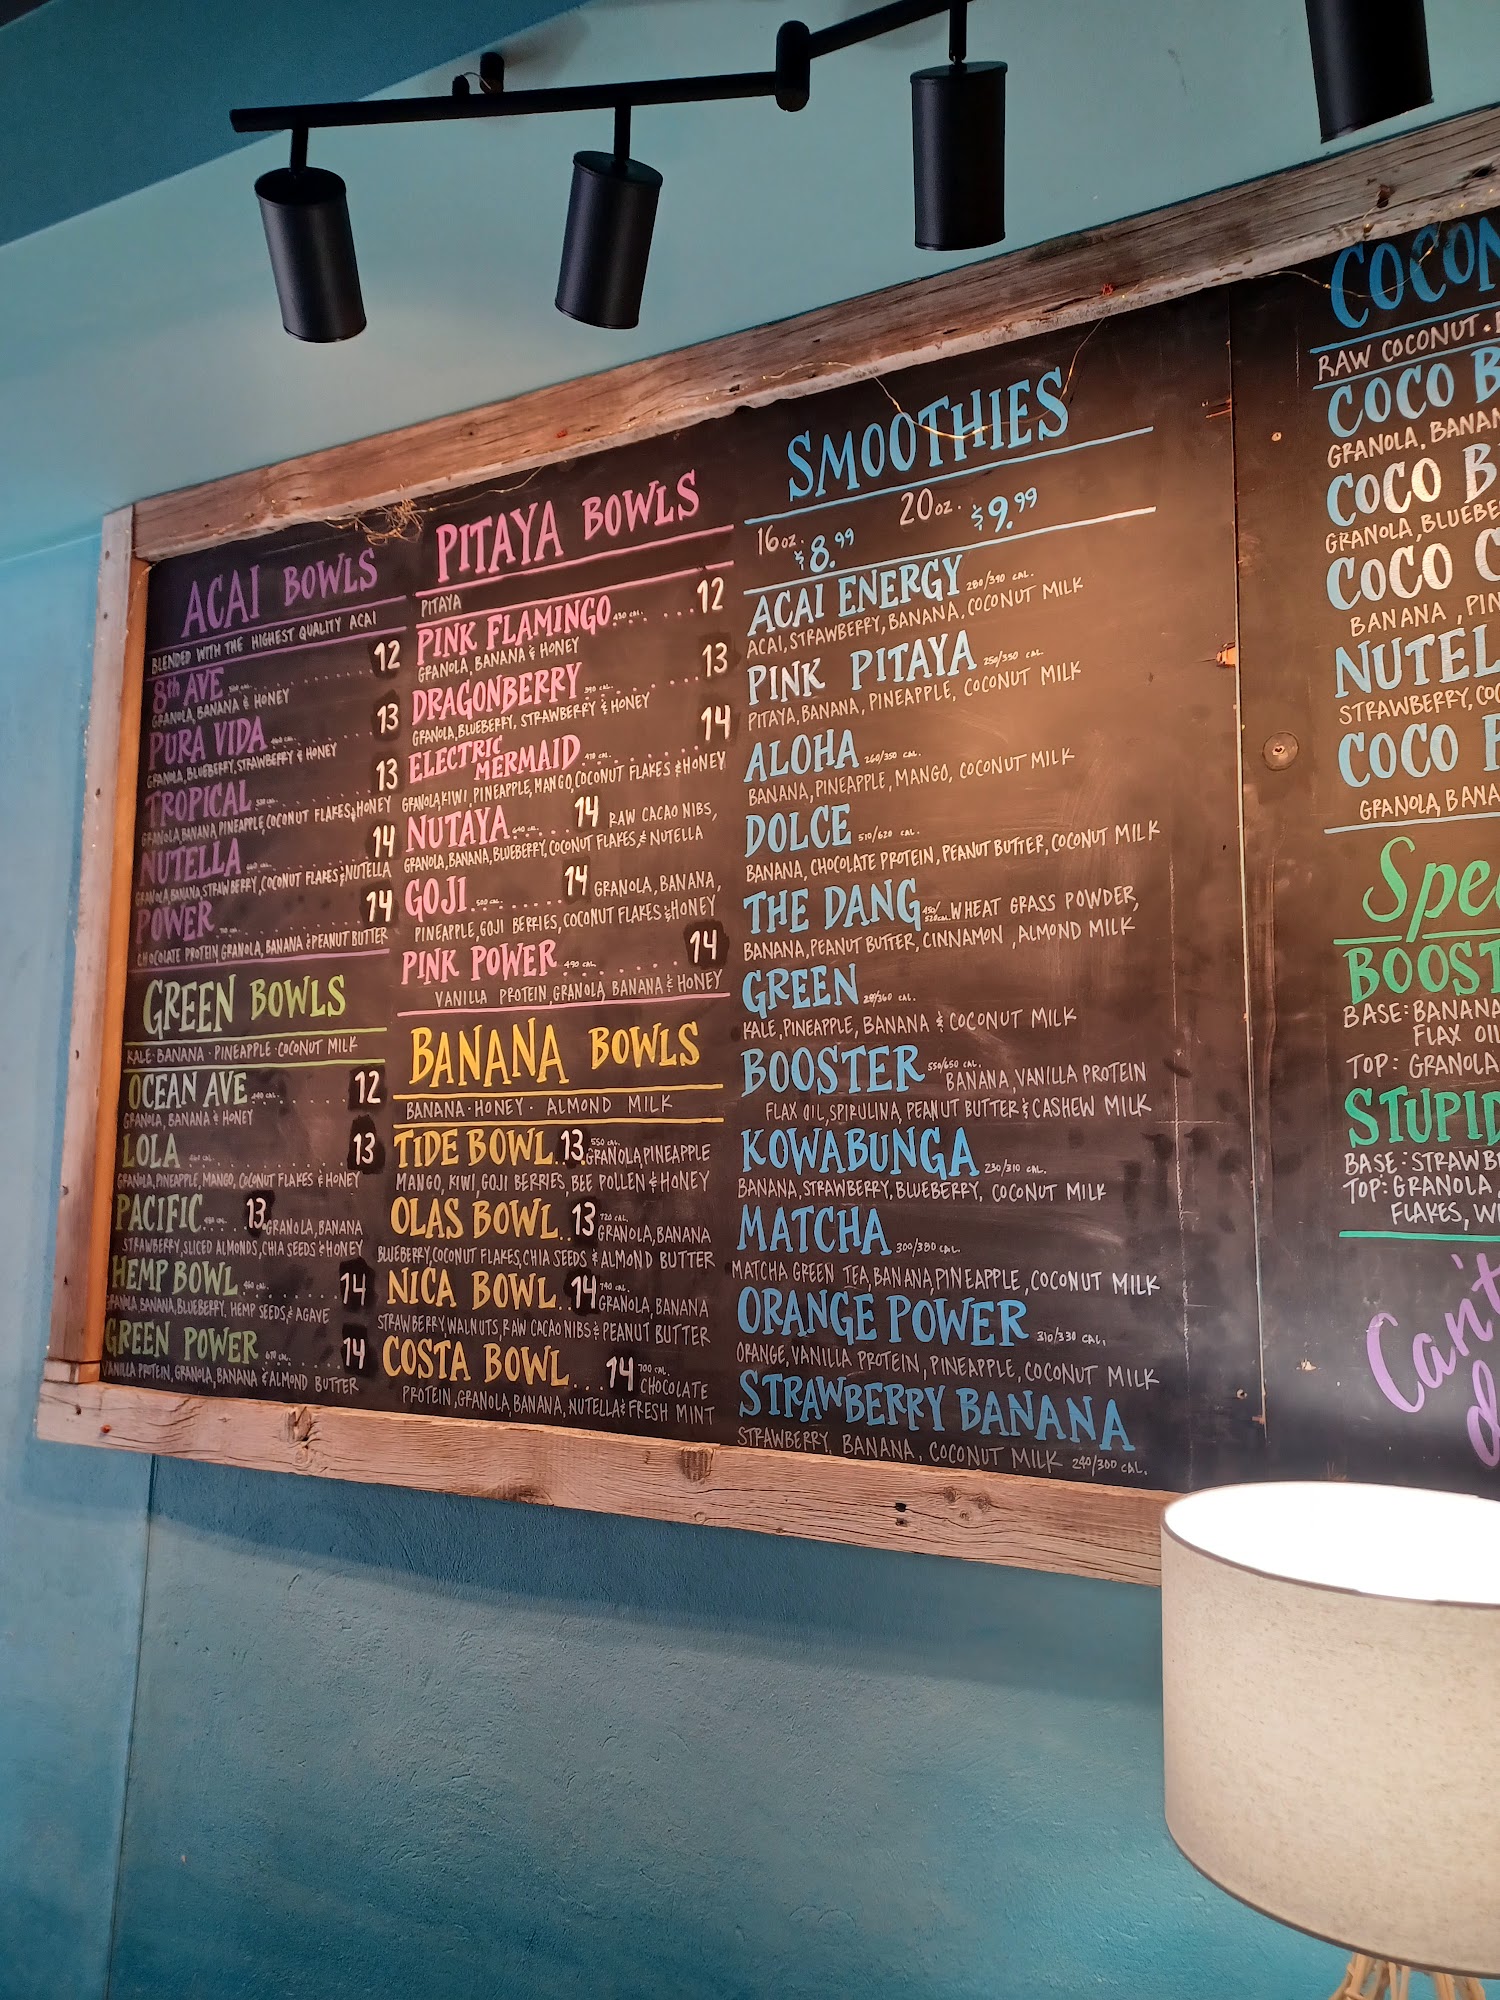 ACAI BOWLS
BLENDED WITH THE HIGHEST QUALITY ACAI
8th AVE 12
GRANOLA, BANANA & HONEY
PURA VIDA 13
GRANOLA, BLUEBERRY, STRAWBERRY & HONEY
TROPICAL 13
GRANOLA, BANANA, PINEAPPLE, COCONUT FLAKES & HONEY
NUTELLA 14
GRANOLA, BANANA, STRAWBERRY, COCONUT FLAKES & NUTELLA
POWER 14
CHOCOLATE PROTEIN GRANOLA, BANANA & PEANUT BUTTER
GREEN BOWLS
KALE · BANANA · PINEAPPLE · COCONUT MILK
OCEAN AVE 12
GRANOLA, BANANA & HONEY
LOLA 13
GRANOLA, PINEAPPLE, MANGO, COCONUT FLAKES & HONEY
PACIFIC 13 GRANOLA, BANANA
STRAWBERRY, SLICED ALMONDS, CHIA SEEDS & HONEY
HEMP BOWL 14
GRANOLA, BANANA, BLUEBERRY, HEMP SEEDS & AGAVE
GREEN POWER 14
VANILLA PROTEIN, GRANOLA, BANANA & ALMOND BUTTER
PITAYA BOWLS
PITAYA
PINK FLAMINGO 12
GRANOLA, BANANA & HONEY
DRAGONBERRY 13
GRANOLA, BLUEBERRY, STRAWBERRY & HONEY
ELECTRIC MERMAID 14
GRANOLA, KIWI, PINEAPPLE, MANGO, COCONUT FLAKES & HONEY
NUTAYA 14 RAW CACAO NIBS,
GRANOLA, BANANA, BLUEBERRY, COCONUT FLAKES & NUTELLA
GOJI 14 GRANOLA, BANANA,
PINEAPPLE, GOJI BERRIES, COCONUT FLAKES & HONEY
PINK POWER 490 CAL. 14
VANILLA PROTEIN, GRANOLA, BANANA & HONEY
BANANA BOWLS
BANANA · HONEY · ALMOND MILK
TIDE BOWL 13 550 CAL. GRANOLA, PINEAPPLE
MANGO, KIWI, GOJI BERRIES, BEE POLLEN & HONEY
OLAS BOWL 13 720 CAL. GRANOLA, BANANA
BLUEBERRY, COCONUT FLAKES, CHIA SEEDS & ALMOND BUTTER
NICA BOWL 14 GRANOLA, BANANA
STRAWBERRY, WALNUTS, RAW CACAO NIBS & PEANUT BUTTER
COSTA BOWL 14 700 CAL. CHOCOLATE
PROTEIN, GRANOLA, BANANA, NUTELLA & FRESH MINT
SMOOTHIES
16oz. $8.99 20oz. $9.99
ACAI ENERGY CAL.
ACAI, STRAWBERRY, BANANA, COCONUT MILK
PINK PITAYA CAL.
PITAYA, BANANA, PINEAPPLE, COCONUT MILK
ALOHA 260/350 CAL.
BANANA, PINEAPPLE, MANGO, COCONUT MILK
DOLCE 510/620 CAL.
BANANA, CHOCOLATE PROTEIN, PEANUT BUTTER, COCONUT MILK
THE DANG WHEAT GRASS POWDER,
BANANA, PEANUT BUTTER, CINNAMON, ALMOND MILK
GREEN CAL.
KALE, PINEAPPLE, BANANA & COCONUT MILK
BOOSTER 550/650 CAL. BANANA, VANILLA PROTEIN
FLAX OIL, SPIRULINA, PEANUT BUTTER & CASHEW MILK
KOWABUNGA 230/310 CAL.
BANANA, STRAWBERRY, BLUEBERRY, COCONUT MILK
MATCHA 300/380 CAL.
MATCHA GREEN TEA, BANANA, PINEAPPLE, COCONUT MILK
ORANGE POWER 310/330 CAL.
ORANGE, VANILLA PROTEIN, PINEAPPLE, COCONUT MILK
STRAWBERRY BANANA
STRAWBERRY, BANANA, COCONUT MILK 240/300 CAL.
COCON
RAW COCONUT ·
COCO B
GRANOLA, BANAN
COCO B
GRANOLA, BLUEBE
COCO C
BANANA, PIN
NUTEL
STRAWBERRY, CO
COCO
GRANOLA, BANA
Spe
BOOST
BASE: BANANA
FLAX OIL
TOP: GRANOLA
STUPID
BASE: STRAWB
TOP: GRANOLA,
FLAKES,
Can't
d